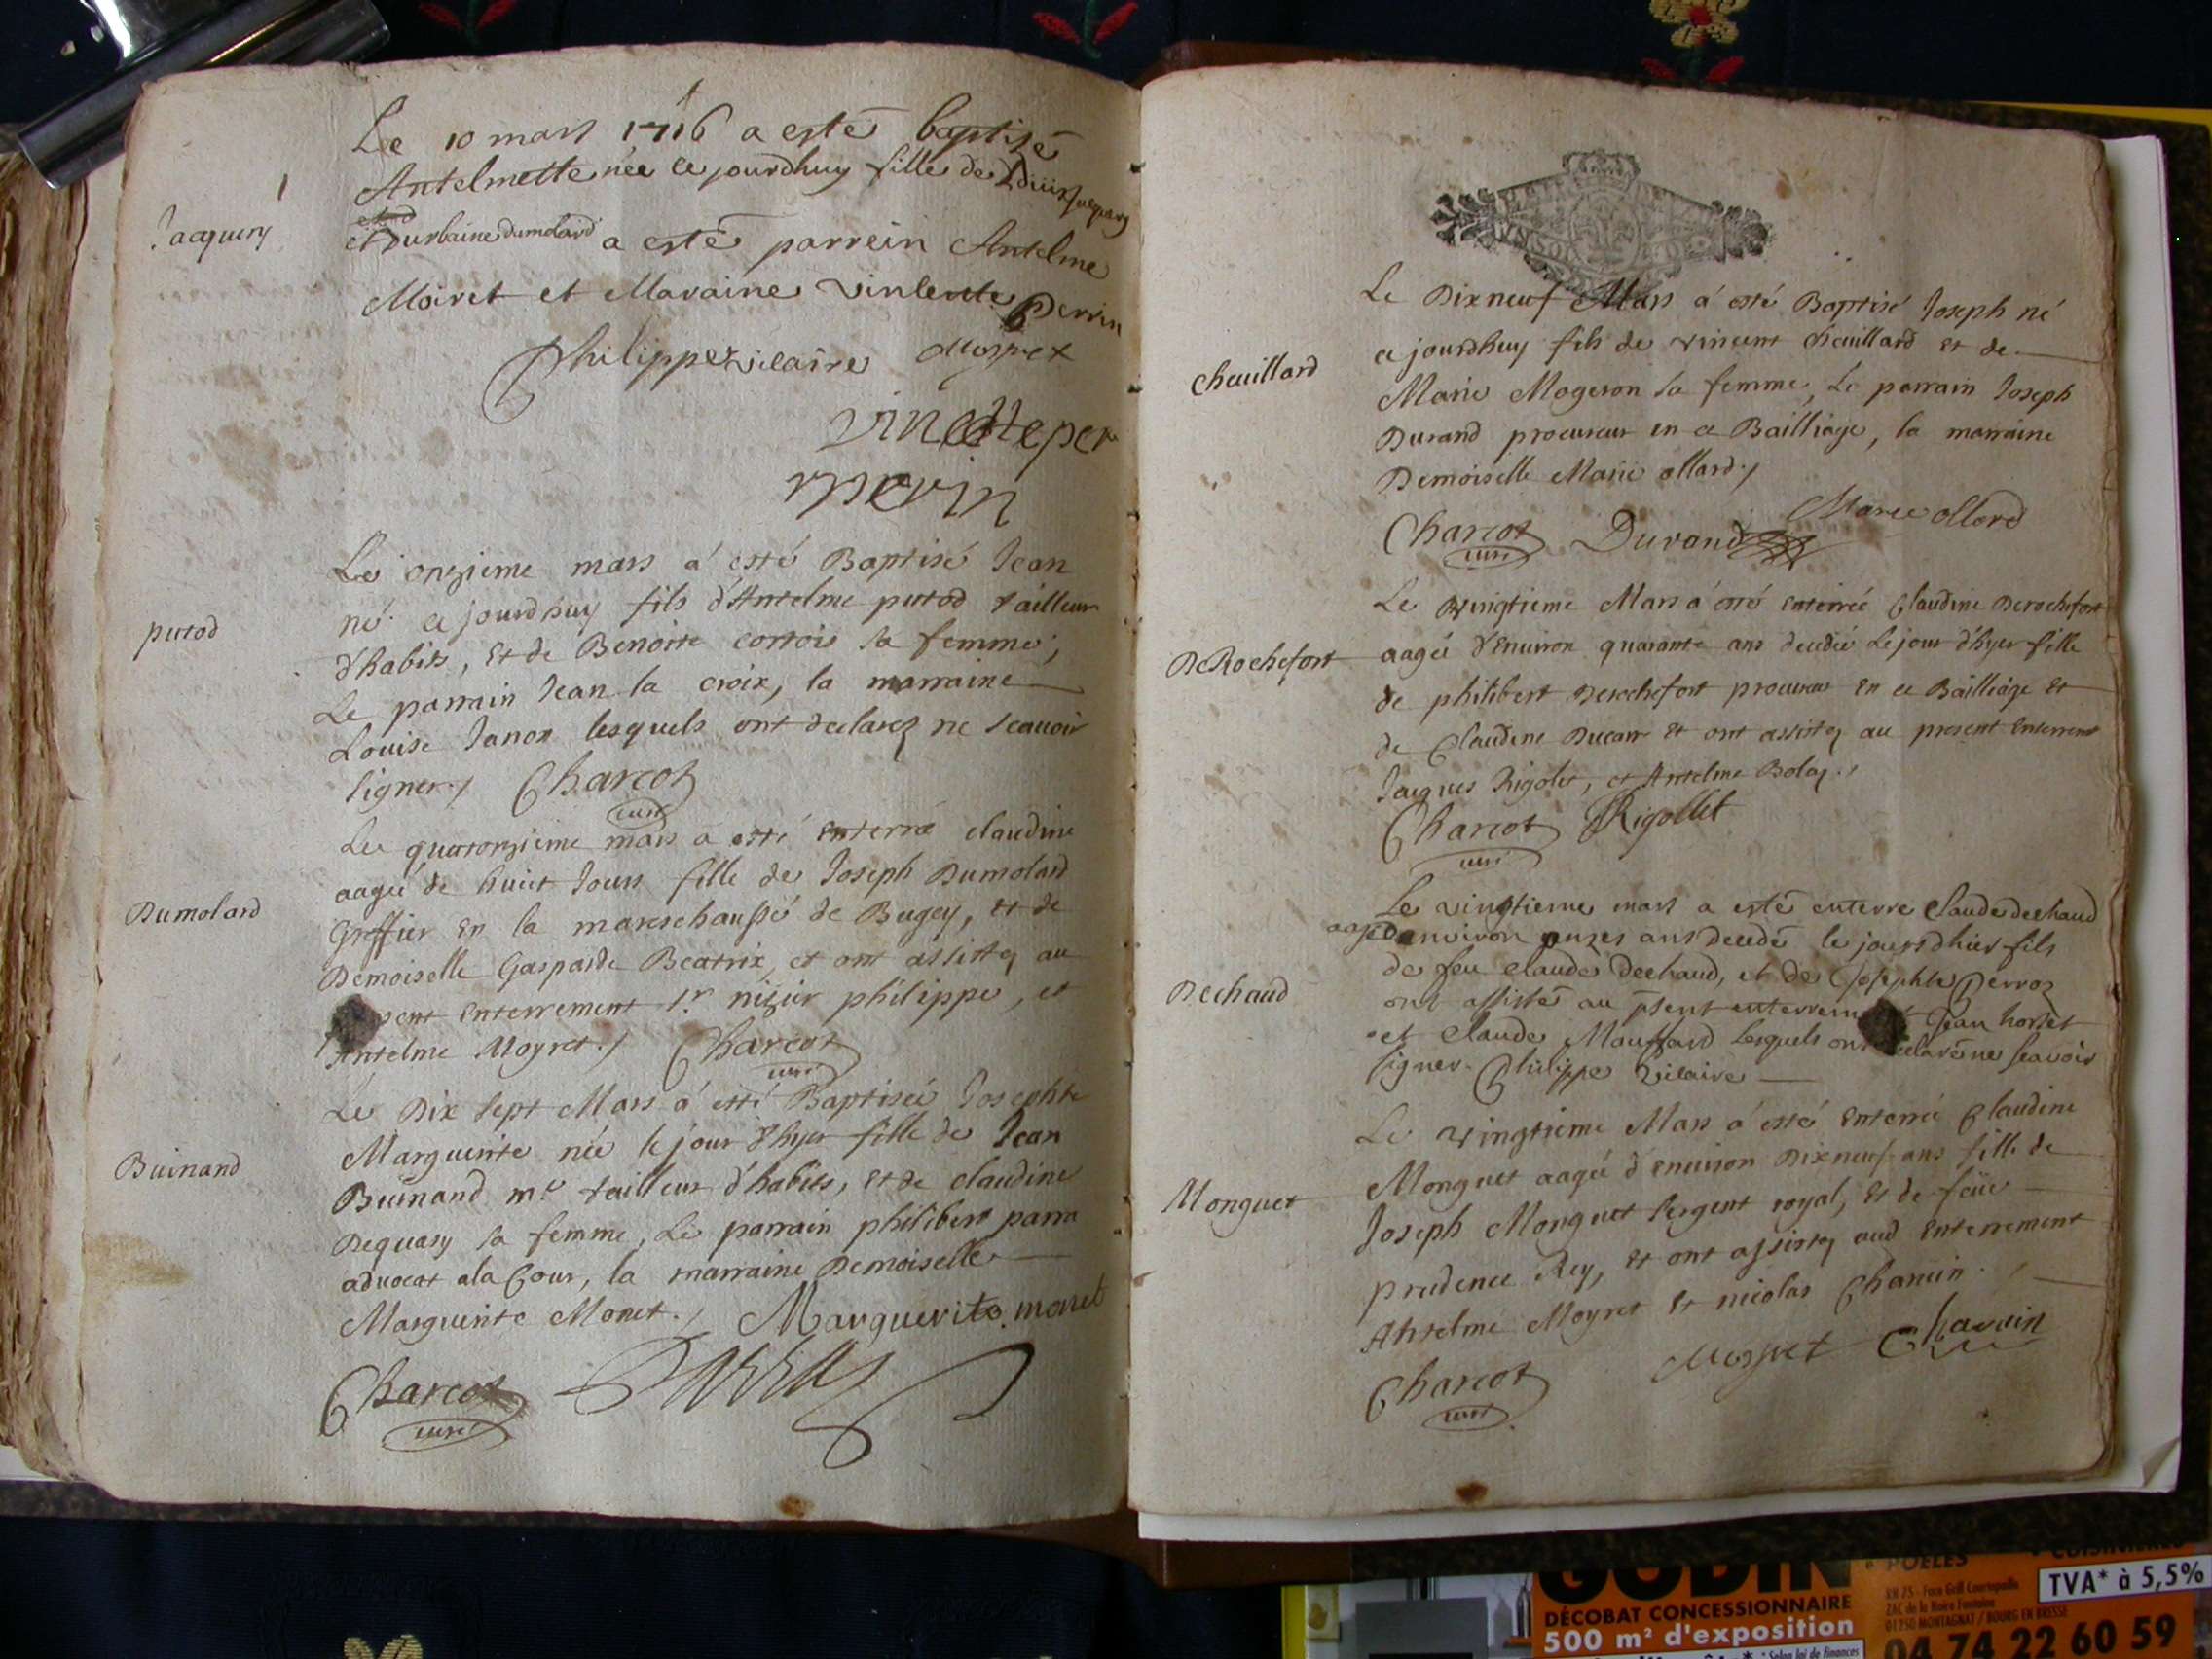 Jacquery
Le 10 mars 1716 a esté baptisé
Antelmette née ce jourdhuy fille de
et Durbaine dumolard a esté parrein Antelme
Moiret et Maraine vincente Perrin
Philippe vicaire Moyret
vincette per
rin
putod
Le onzieme mars a esté Baptisé Jean
né ce jourdhuy fils d'Antelme putod tailleur
d'habits, et de Benoite cortois sa femme,
Le parrain Jean la croix, la marraine
Louise Janon lesquels ont declarez ne scauoir
signer./ Charcot
curé
Dumolard
Le quatorzieme mars a esté enterré claudine
aagée de huict Jours fille de Joseph Dumolard
Greffier en la mareschaussé de Bugey, et de
Demoiselle Gasparde Beatrix, et ont assistez au
present enterrement Sr. nizier philippe, et
Antelme Moyret./ Charcot
curé
Buinand
Le Dix sept Mars a esté Baptisée Josephte
Marguerite née le jour d'hyer fille de Jean
Buinand me tailleur d'habits, et de claudine
Dequary sa femme, Le parrain philibert parra
aduocat a la Cour, la marraine Demoiselle
Marguerite Monet./ Marguerite monet
Charcot Parra
curé
Chauillard
Le Dixneuf Mars a esté Baptisé Joseph né
ce jourdhuy fils de vincent Chauillard et de
Marie Mogeron sa femme, Le parrain Joseph
Durand procureur en ce Bailliage, la marraine
Demoiselle Marie ollard./
Charcot Durand Marie ollard
curé
DeRochefort
Le vingtieme Mars a esté enterrée Claudine Derochefort
aagée d'enuiron quarante ans decedée Le jour d'hyer fille
de philibert Derochefort procureur en ce Bailliage et
de Claudine Ducarr et ont assistez au present enterrement
Jacques Rigolet, et Antelme Bolaz./
Charcot Rigollet
curé
Dechaud
Le vingtieme mars a esté enterre Claude dechaud
aagé denviron onzes ans decedé le jours dhier fils
de feu claude Dechaud, et de Josephte Perroz
ont assistés au psent enterrement Jean
et Claude Mouffard lesquels ont declaré ne scavoir
signer. Philippe Vicaire
Monguet
Le vingtieme Mars a esté enterrée Claudine
Monguet aagée d'enuiron Dixneuf ans fille de
Joseph Monguet sergent royal, et de feüe
prudence Rey, et ont assistez aud enterrement
Antelme Moyret et nicolas Chanuin./
Charcot Moyret Chanvin
curé
GODIN
DÉCOBAT CONCESSIONNAIRE
500 m² d'exposition
POÊLES
RN 75 - Face Grill Courtepaille
ZAC de la Noire Fontaine
01250 MONTAGNAT / BOURG EN BRESSE
TVA* à 5,5%
04 74 22 60 59
* Selon loi de finances